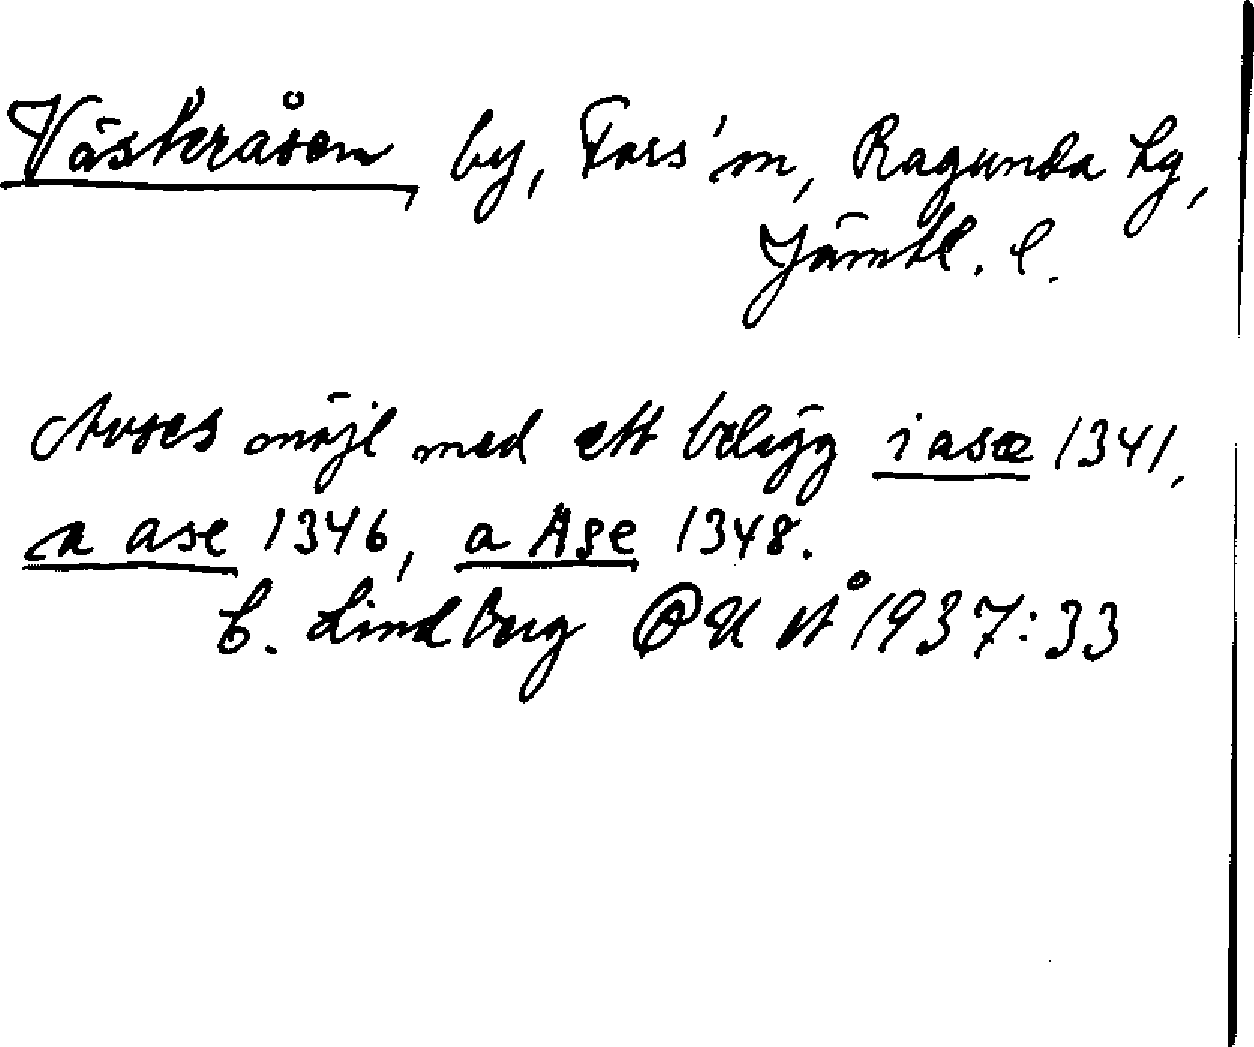 Västeråsen by, Fors sn, Ragunda tg,
Jämtl. l.
Avses möjl med ett belägg i asæ 1341,
a ase 1346, a Ase 1348.
C. Lindberg OUÅ 1937:33